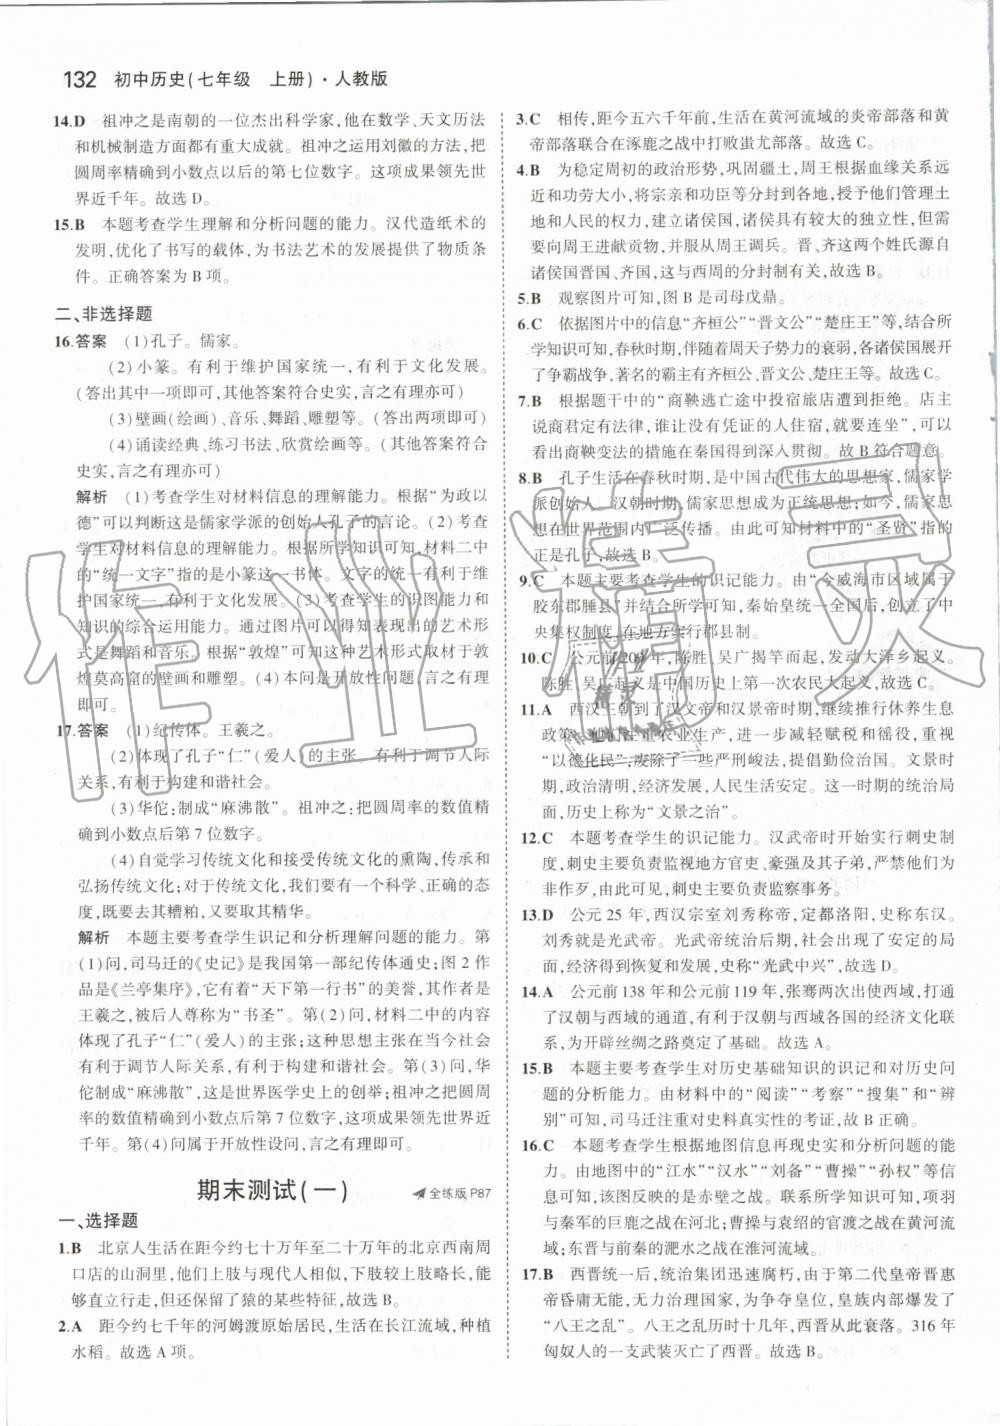 132 初中历史(七年级 上册)·人教版
14.D 祖冲之是南朝的一位杰出科学家,他在数学、天文历法
和机械制造方面都有重大成就。祖冲之运用刘徽的方法,把
圆周率精确到小数点以后的第七位数字。这项成果领先世
界近千年。故选D。
15.B 本题考查学生理解和分析问题的能力。汉代造纸术的
发明,优化了书写的载体,为书法艺术的发展提供了物质条
件。正确答案为B项。
二、非选择题
16.答案 (1)孔子。儒家。
(2)小篆。有利于维护国家统一,有利于文化发展。
(答出其中一项即可,其他答案符合史实,言之有理亦可)
(3)壁画(绘画)、音乐、舞蹈、雕塑等。(答出两项即可)
(4)诵读经典、练习书法、欣赏绘画等。(其他答案符合
史实,言之有理亦可)
解析 (1)考查学生对材料信息的理解能力。根据“为政以
德”可以判断这是儒家学派的创始人孔子的言论。(2)考查
学生对材料信息的理解能力。根据所学知识可知,材料二中
的“统一文字”指的是小篆这一书体。文字的统一有利于维
护国家统一,有利于文化发展。(3)考查学生的识图能力和
知识的综合运用能力。通过图片可以得知表现出的艺术形
式是舞蹈和音乐。根据“敦煌”可知这种艺术形式取材于敦
煌莫高窟的壁画和雕塑。(4)本问是开放性问题,言之有理
即可。
17.答案 (1)纪传体。王羲之。
(2)体现了孔子“仁”(爱人)的主张。有利于调节人际
关系,有利于构建和谐社会。
(3)华佗:制成“麻沸散”。祖冲之:把圆周率的数值精
确到小数点后第7位数字。
(4)自觉学习传统文化和接受传统文化的熏陶,传承和
弘扬传统文化;对于传统文化,我们要持科学、正确的态
度,既要去其糟粕,又要取其精华。
解析 本题主要考查学生识记和分析理解问题的能力。第
(1)问,司马迁的《史记》是我国第一部纪传体通史;图2作
品是《兰亭集序》,它有着“天下第一行书”的美誉,其作者是
王羲之,被后人尊称为“书圣”。第(2)问,材料二中的内容
体现了孔子“仁”(爱人)的主张;这种主张在当今社会
有利于调节人际关系、有利于构建和谐社会。第(3)问,华
佗制成“麻沸散”,这是世界医学史上的创举;祖冲之把圆周
率的数值精确到小数点后第7位数字,这项成果领先世界近
千年。第(4)问属于开放性设问,言之有理即可。
期末测试(一) 全练版P87
一、选择题
1.B 北京人生活在距今约七十万年至二十万年的北京西南周
口店的山洞里,他们上肢与现代人相似,下肢较上肢略长,能
够直立行走,但还保留了猿的某些特征,故选B。
2.A 距今约七千年的河姆渡原始居民,生活在长江流域,种植
水稻。故选A项。
3.C 相传,距今五六千年前,生活在黄河流域的炎帝部落和黄
帝部落联合在涿鹿之战中打败蚩尤部落。故选C。
4.B 为稳定周初的政治形势,巩固疆土,周王根据血缘关系远
近和功劳大小,将宗亲和功臣等分封到各地,授予他们管理土
地和人民的权力,建立诸侯国,诸侯具有较大的独立性,但同时
要向周王进献贡物,并服从周王调兵。晋、齐这两个姓氏源自
诸侯国晋国、齐国,这与西周的分封制有关,故选B。
5.B 观察图片可知,图B是司母戊鼎。
6.C 依据图片中的信息“齐桓公”“晋文公”“楚庄王”等,结合所
学知识可知,春秋时期,伴随着周天子势力的衰落,各诸侯国展开
了争霸战争,著名的霸主有齐桓公、晋文公、楚庄王等。故选C。
7.B 根据题干中的“商鞅逃亡途中投宿旅店遭到拒绝。店主
说商君定有法律,谁让没有凭证的人住宿,就要连坐”,可以看
出商鞅变法的措施在秦国得到了深入贯彻。故B符合题意。
8.B 孔子生活在春秋时期,是中国古代伟大的思想家,儒家学
派创始人。汉朝时期,儒家思想成为正统思想;如今,儒家思
想在世界范围内广泛传播。由此可知材料中的“圣贤”指的
正是孔子,故选B。
9.C 本题主要考查学生的识记能力。由“今威海市区域属于
胶东郡腄县”并结合所学可知,秦始皇统一全国后,创立了中
央集权制度,在地方实行郡县制。
10.C 公元前209年,陈胜、吴广揭竿而起,发动大泽乡起义。
陈胜、吴广起义是中国历史上第一次农民大起义,故选C。
11.A 西汉王朝到了汉文帝和汉景帝时期,继续推行休养生息
政策。他们注重农业生产,进一步减轻赋税和徭役,重视
“以德化民”,废除了一些严刑峻法,提倡勤俭治国。文景时
期,政治清明,经济发展,人民生活安定。这一时期的统治局
面,历史上称为“文景之治”。
12.C 本题考查学生的识记能力。汉武帝时开始实行刺史制
度,刺史主要负责监视地方官吏、豪强及其子弟,严禁他们为
非作歹,由此可见,刺史主要负责监察事务。
13.D 公元25年,西汉宗室刘秀称帝,定都洛阳,史称东汉。
刘秀就是光武帝。光武帝统治后期,社会出现了安定的局
面,经济得到恢复和发展,史称“光武中兴”,故选D。
14.A 公元前138年和公元前119年,张骞两次出使西域,打通
了汉朝与西域的通道,有利于汉朝与西域各国的经济文化联
系,为开辟丝绸之路奠定了基础。故选A。
15.B 本题主要考查学生对历史基础知识的识记和对历史问
题的分析能力。由材料中的“阅读”“考察”“搜集”和“辨
别”可知,司马迁注重对史料真实性的考证,故B正确。
16.C 本题考查学生根据地图信息再现史实和分析问题的能
力。由地图中的“江水”“汉水”“刘备”“曹操”“孙权”等信
息可知,该图反映的是赤壁之战。联系所学知识可知,项羽
与秦军的巨鹿之战在河北;曹操与袁绍的官渡之战在黄河流
域;东晋与前秦的淝水之战在淮河流域。
17.B 西晋统一后,统治集团迅速腐朽,由于第二代皇帝晋惠
帝昏庸无能,无力治理国家,为争夺皇位,皇族间爆发了
“八王之乱”。八王之乱历时十几年,西晋从此衰落。316年
匈奴人的一支武装灭亡了西晋。故选B。
作业精灵